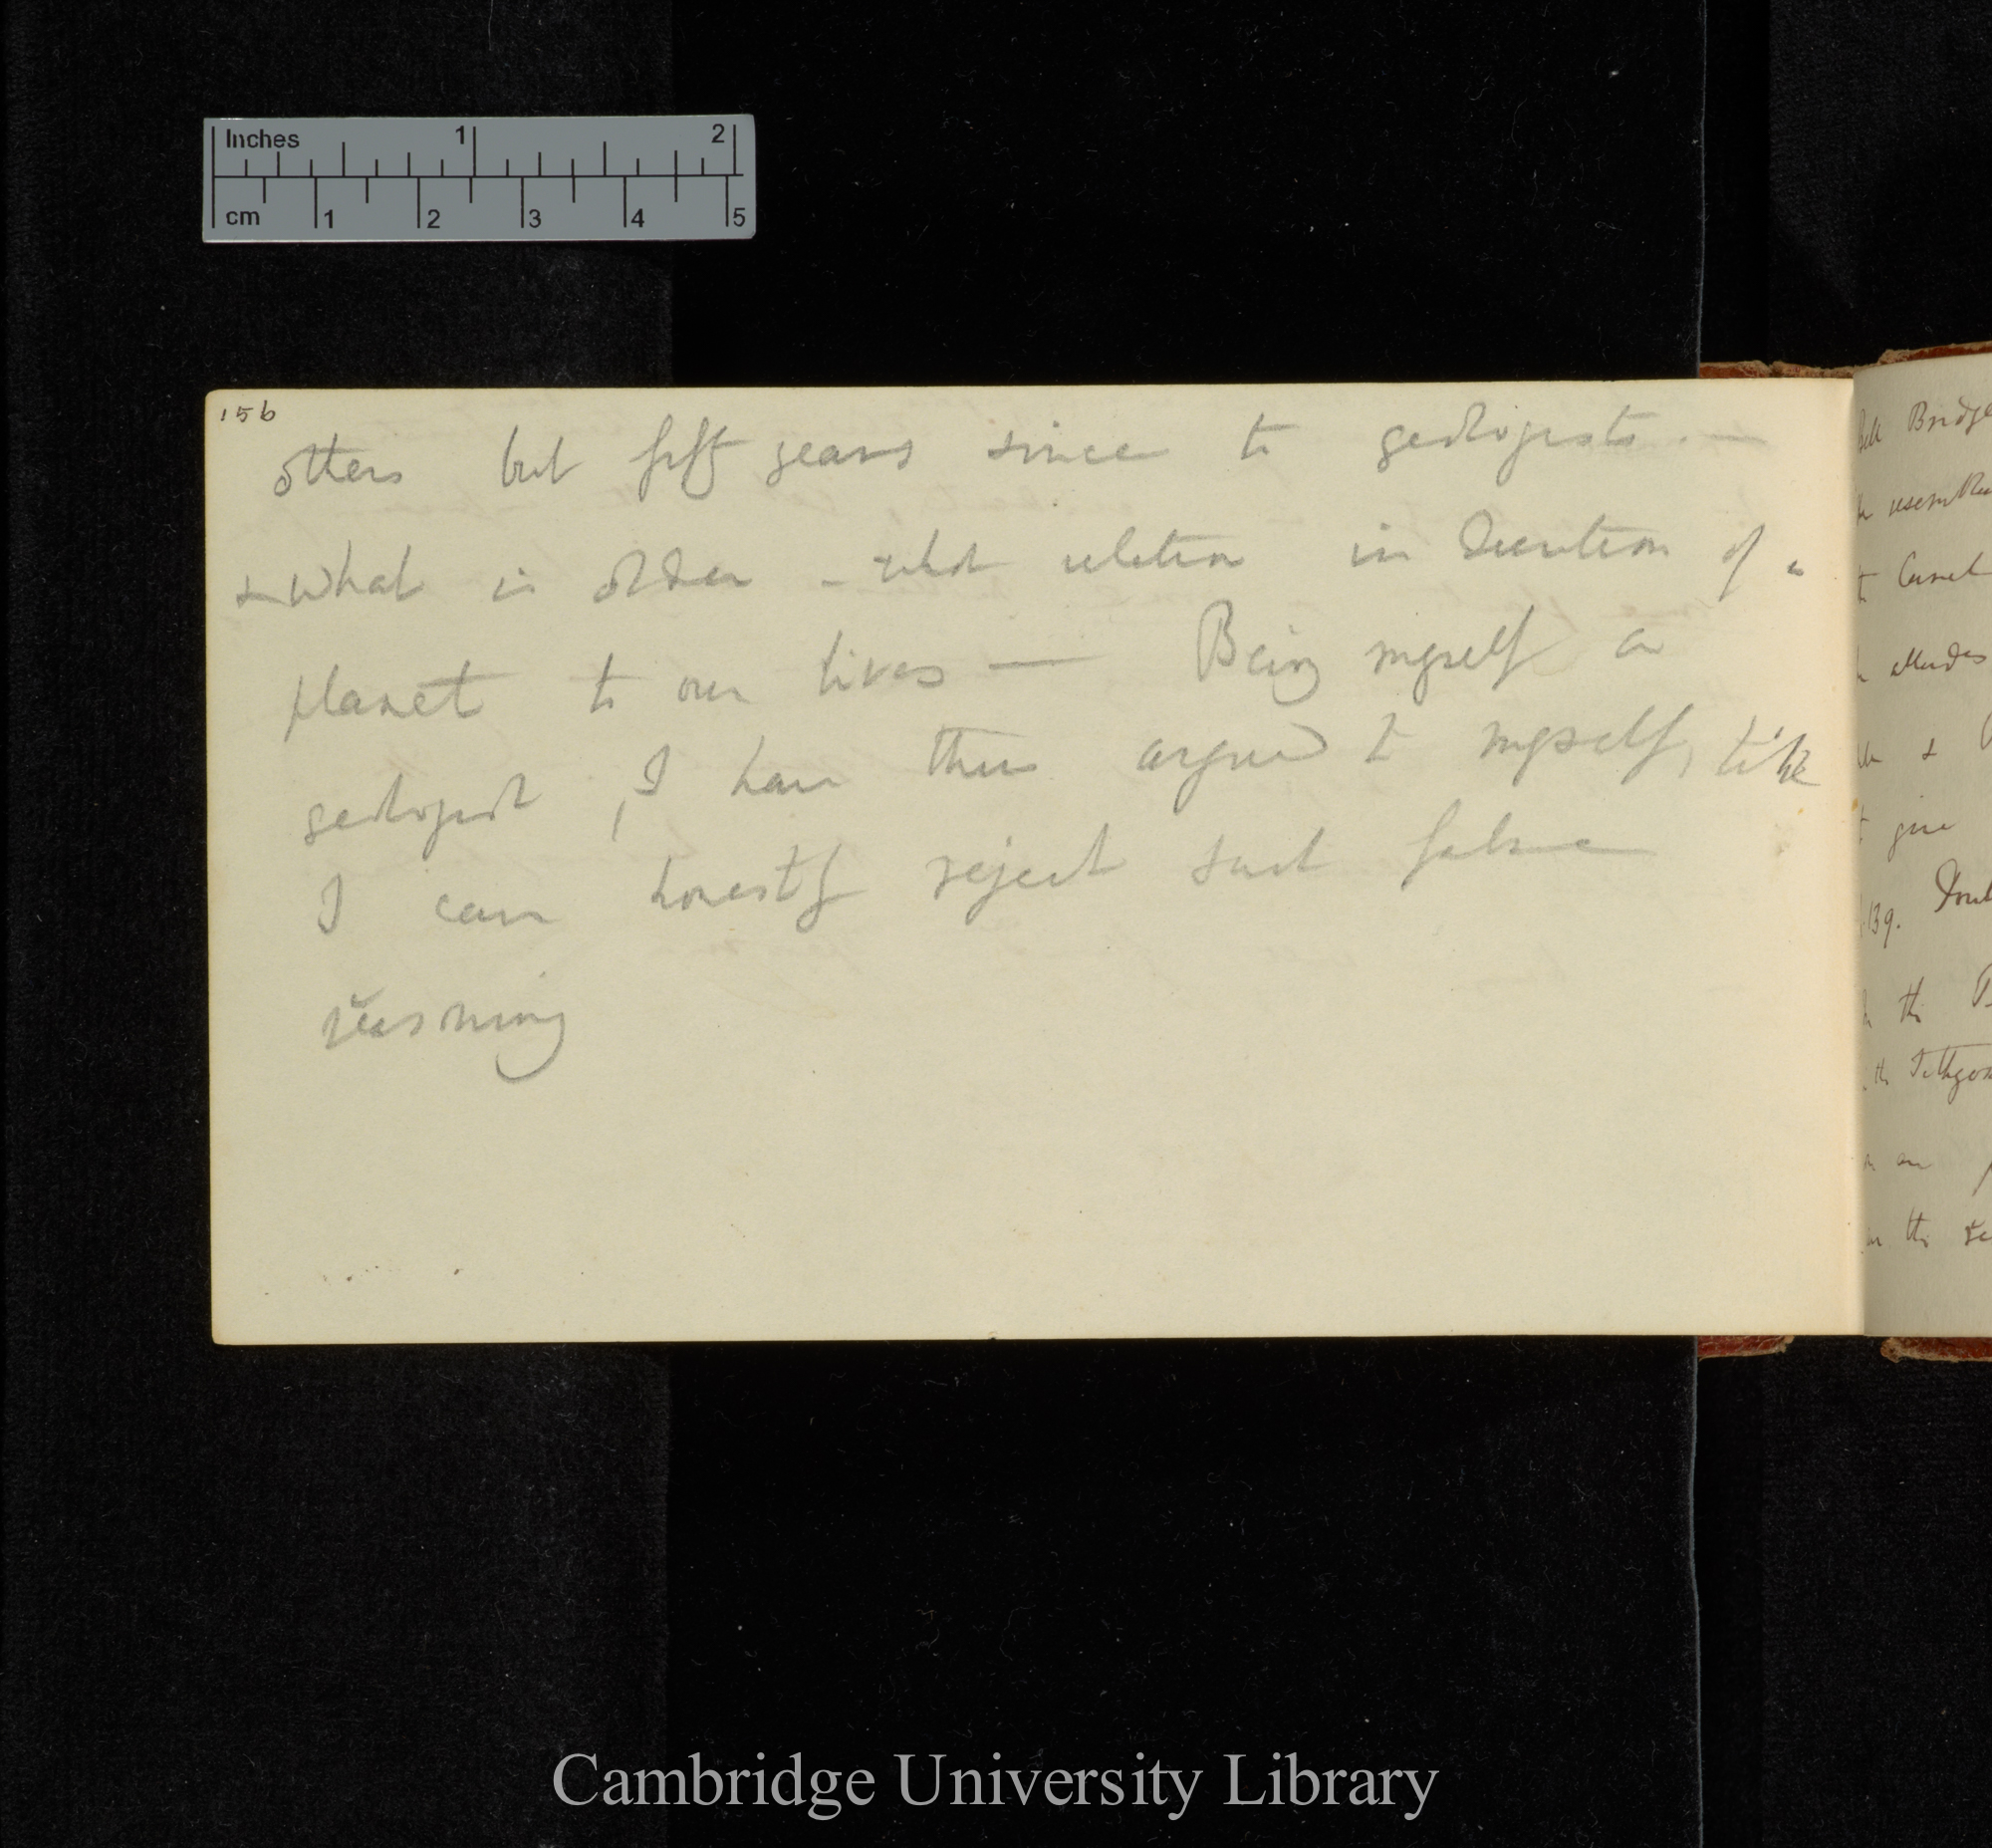 Inches 1 2
cm 1 2 3 4 5
156
others but fifty years since to geologists. —
& what is older - what relation in duration of a
planet to our lives — Being myself a
geologist, I have thus argued to myself, till
I can honestly reject such false
reasoning
Bridge
to
&
139.
in the
the
in the
Cambridge University Library